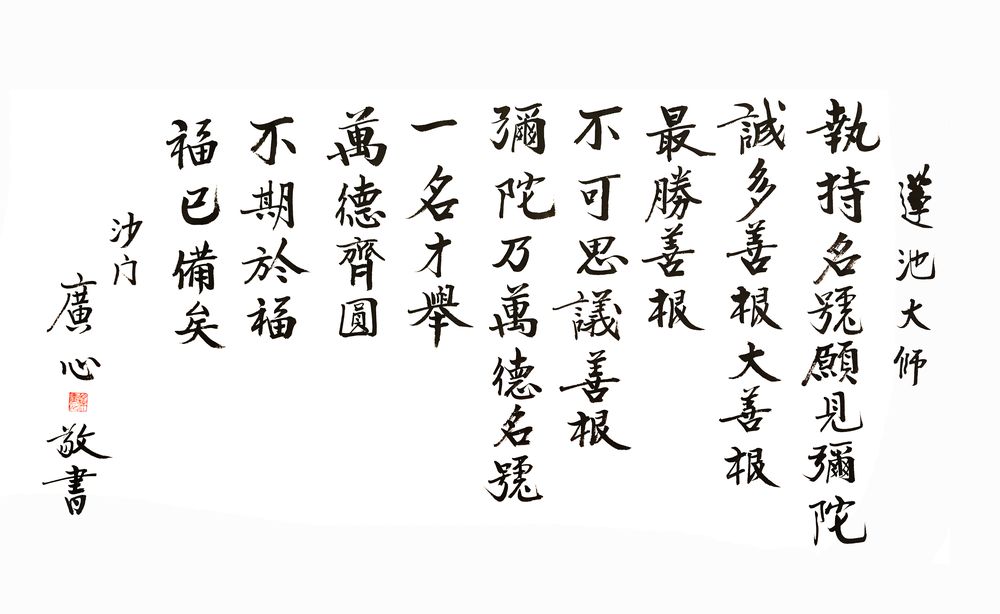 蓮池大师
執持名號願見彌陀
誠多善根大善根
最勝善根
不可思議善根
彌陀乃萬德名號
一名才舉
萬德齊圓
不期於福
福已備矣
沙门
廣心
敬書